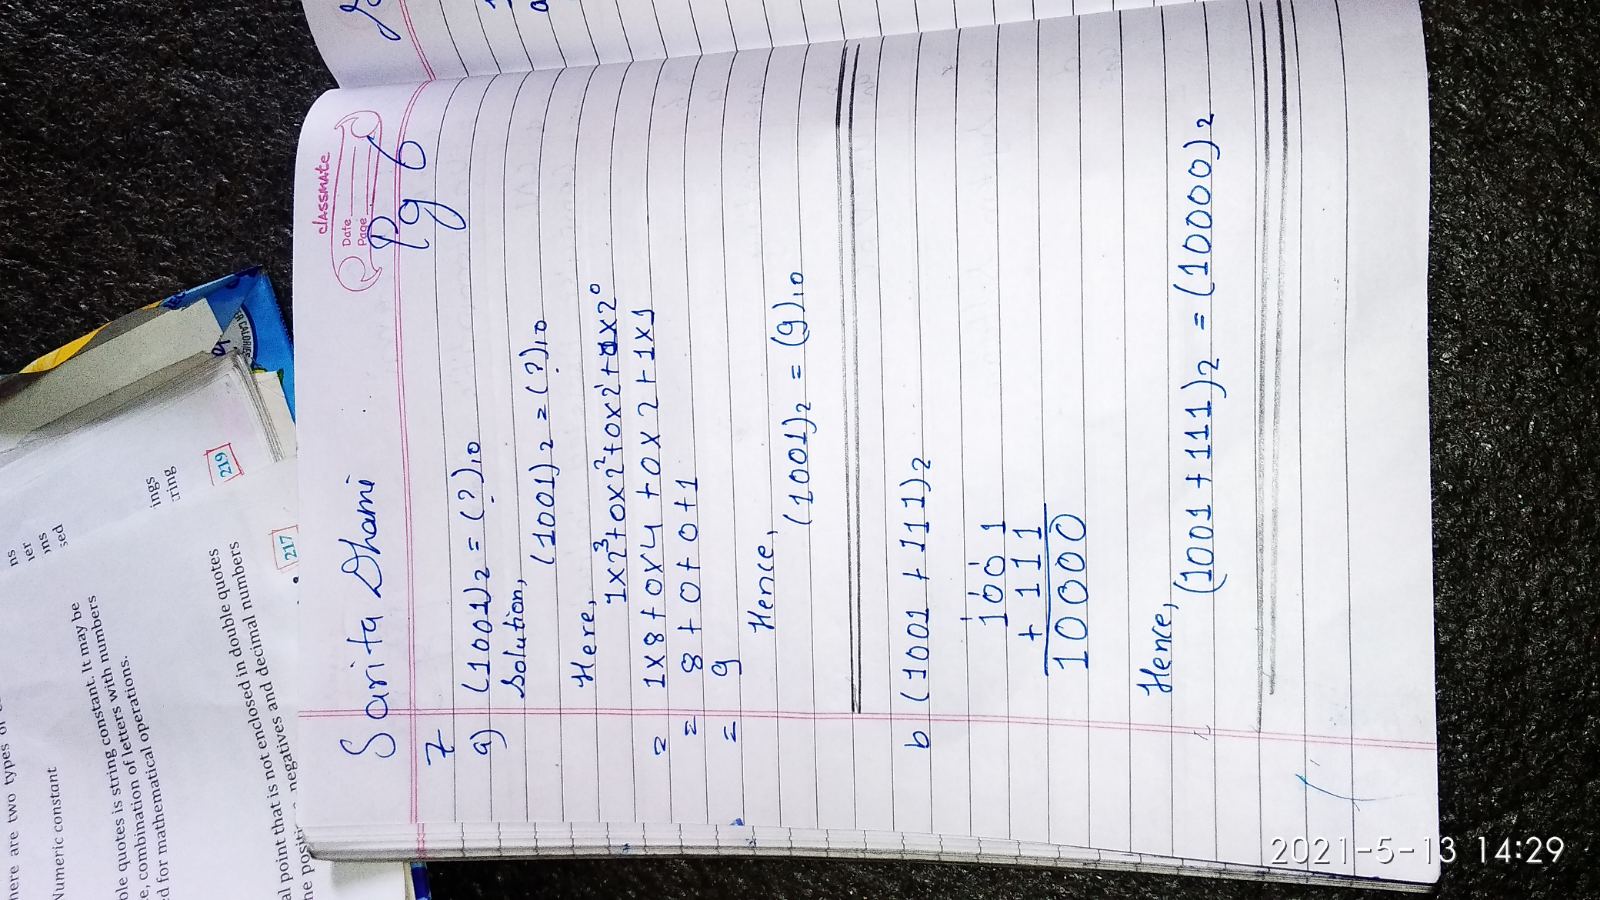 classmate
Date
Page
Pg 6
Sarita Dhami
7
a) (1001)₂ = (?)₁₀
Solution,
(1001)₂ = (?)₁₀
Here,
1×2³+0×2²+0×2¹+1×2⁰
= 1×8+0×4+0×2+1×1
= 8+0+0+1
= 9
Hence,
(1001)₂ = (9)₁₀
b (1001+111)₂
1 1 1
1001
+ 111
10000
Hence,
(1001+111)₂ = (10000)₂
here are two types of
Numeric constant
ole quotes is string constant. It may be
e, combination of letters with numbers
d for mathematical operations.
al point that is not enclosed in double quotes
negatives and decimal numbers
217
219
ns
ier
ins
sed
ings
ring
2021-5-13 14:29